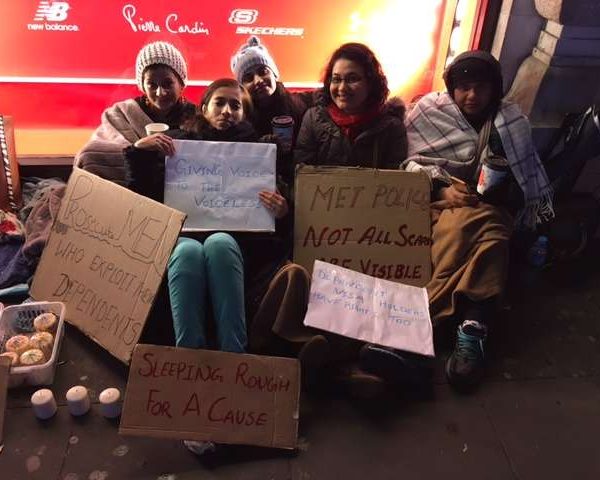 new balance
Pierre Cardin
SKECHERS
GIVING VOICE
TO THE
VOICELESS
Prosecute MEN
WHO EXPLOIT THEIR
DEPENDENTS
MET POLICE
NOT ALL SCARS
ARE VISIBLE
DEPENDENT
VISA HOLDERS
HAVE RIGHTS TOO
SLEEPING ROUGH
FOR A CAUSE